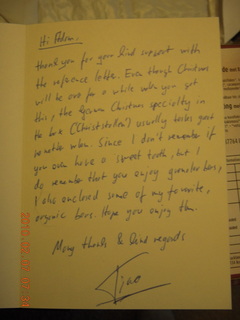 Hi Pedro,
thank you for your kind support with
the reference letter. Even though Christmas
will be over for a while when you get
this, the German Christmas speciality in
the box (Christstollen) usually tastes good
no matter when. Since I don't remember if
you even have a sweet tooth, but I
do remember that you enjoy granola bars,
I also enclosed some of my favorite,
organic bars. Hope you enjoy them
Many thanks & kind regards